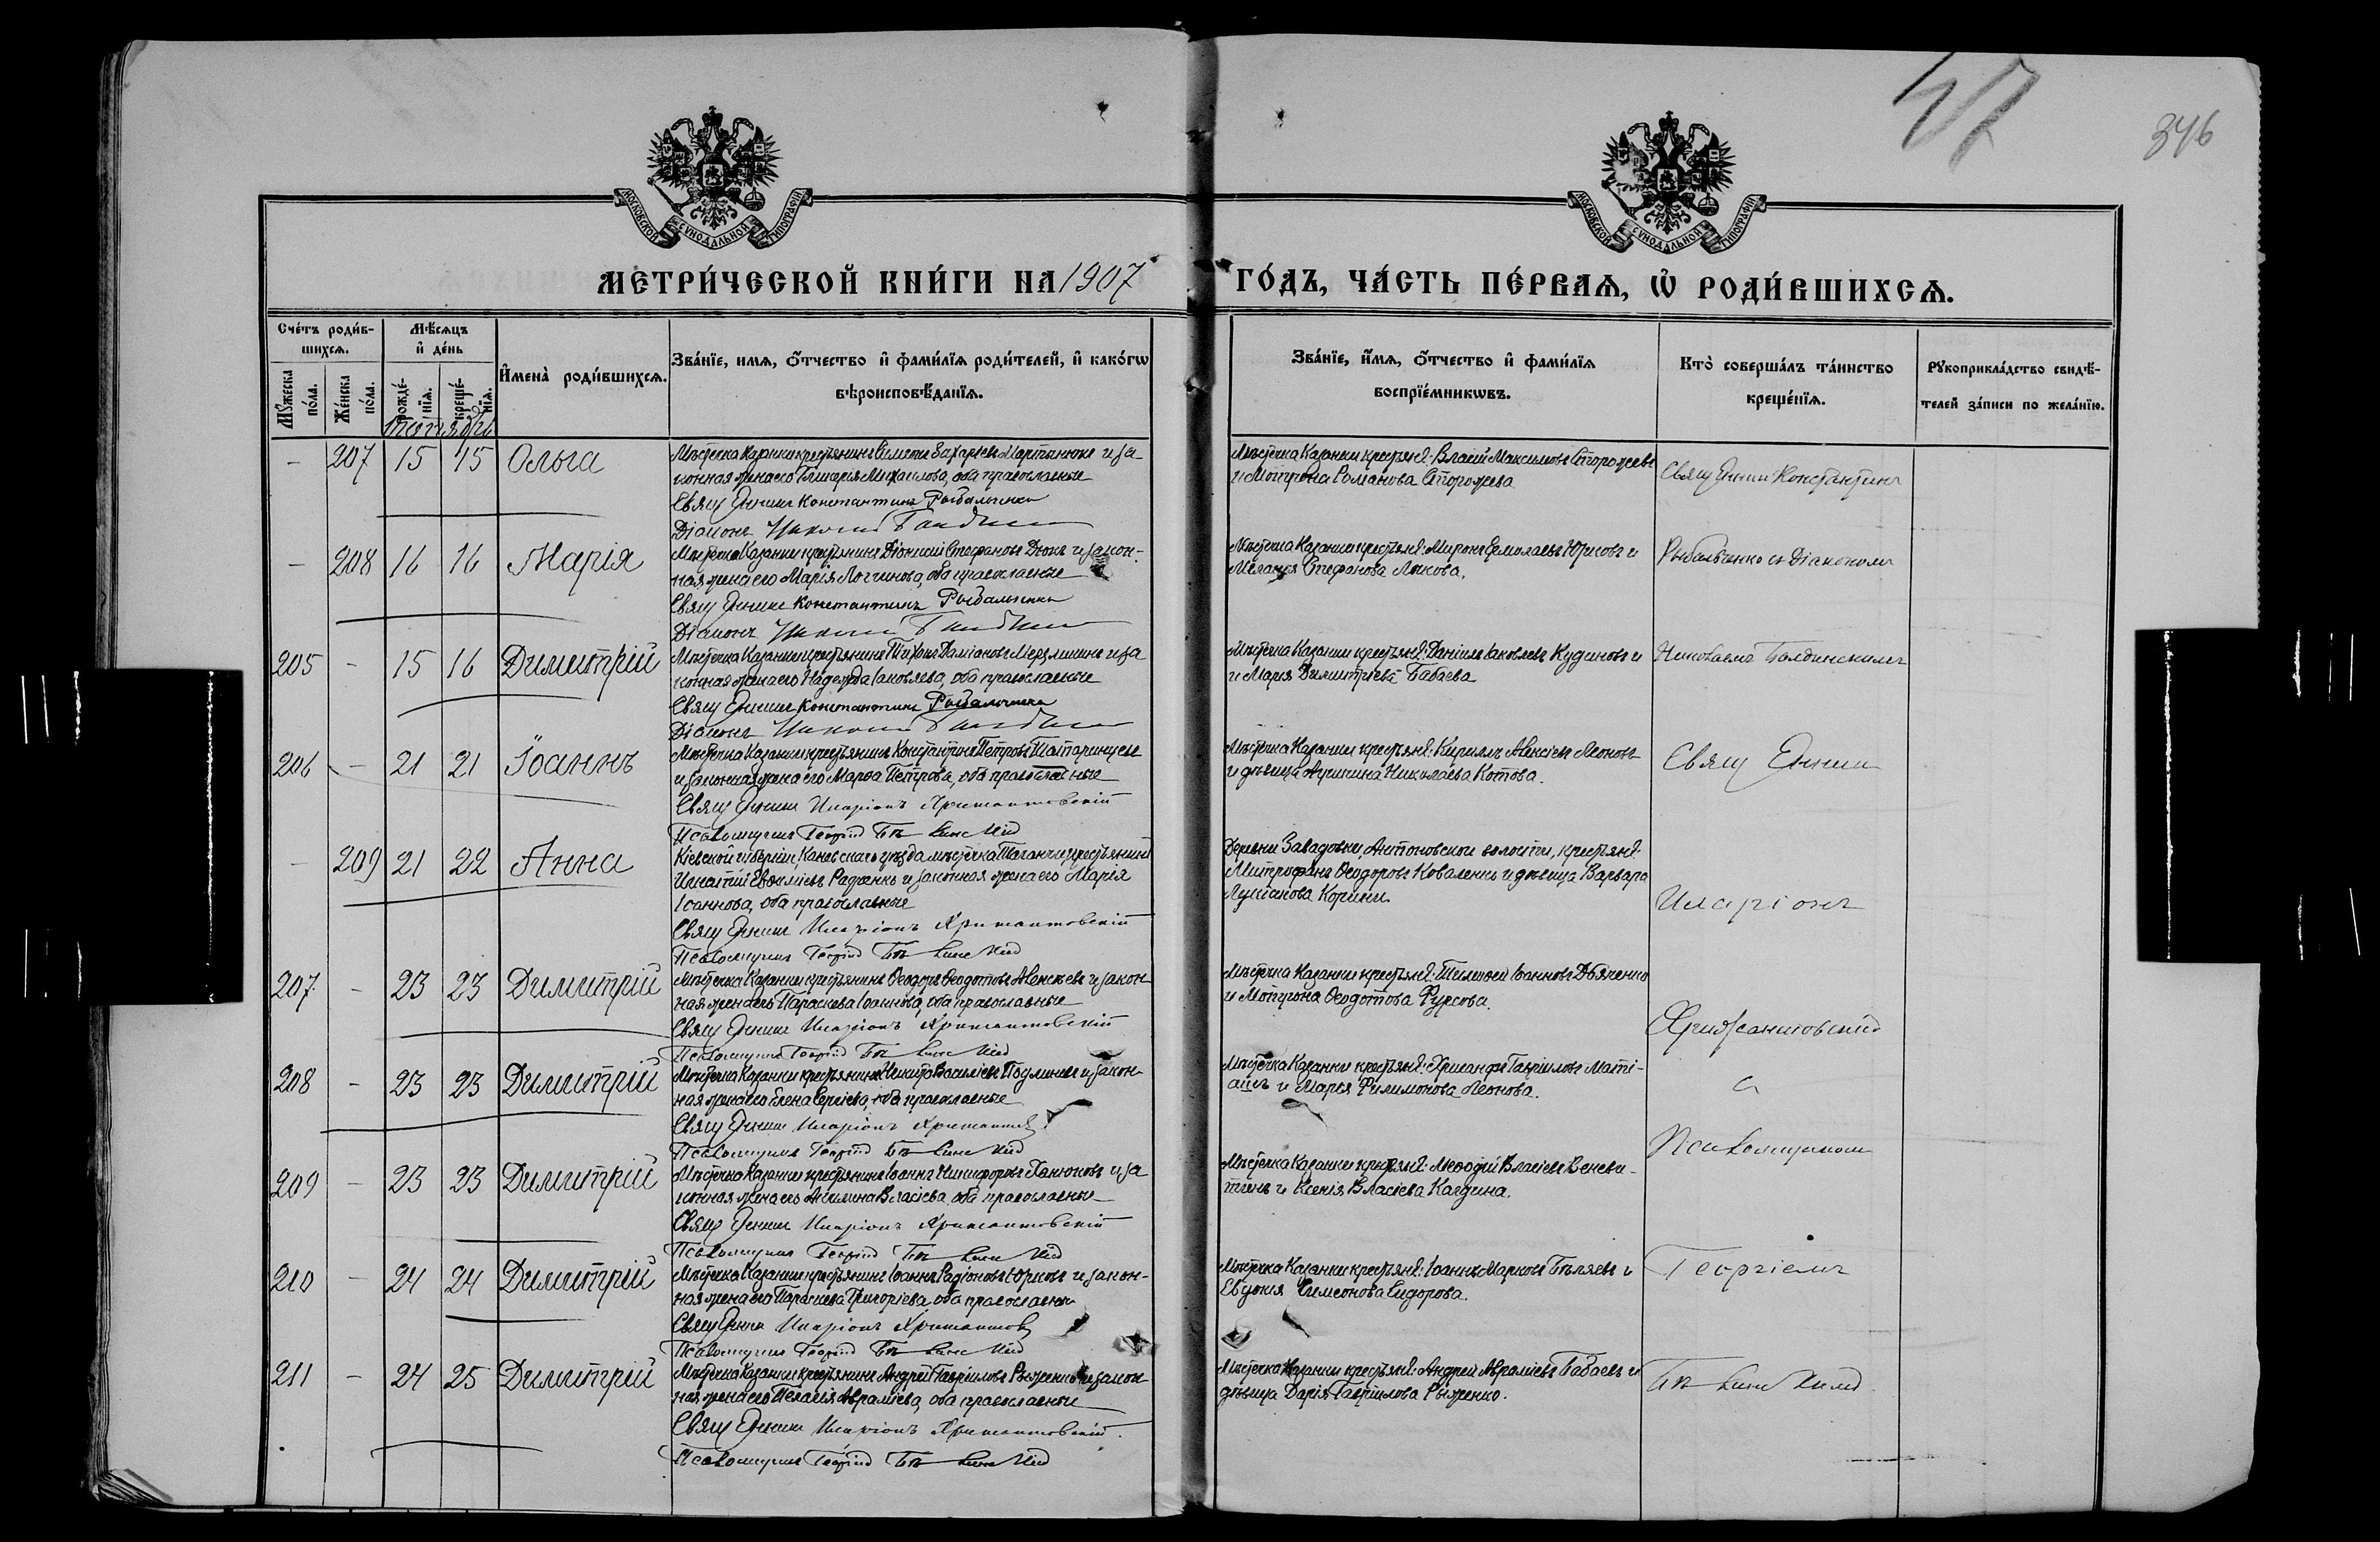 47
346
МОСКОВСКОЙ СѴНОДАЛЬНОЙ ТИПОГРАФІИ
МОСКОВСКОЙ СѴНОДАЛЬНОЙ ТИПОГРАФІИ
МЕТРИ́ЧЕСКОЙ КНИ́ГИ НА 1907 ГО́ДЪ, ЧА́СТЬ ПЕ́РВАѦ, Ѡ҆ РОДИ́ВШИХСѦ.
Сче́тъ роди́в-
шихсѧ.
Мѣ́сѧцъ
и҆ де́нь
И҆мена̀ роди́вшихсѧ.
Зва́нїе, имѧ, ѻ҆́тчество и҆ фами́лїѧ роди́телей, и҆ како́гѡ
вѣроисповѣ́данїѧ.
Зва́нїе, и҆́мѧ, ѻ҆́тчество и҆ фами́лїѧ
воспрїе́мникѡвъ.
Кто̀ соверша́лъ та́инство
креще́нїѧ.
Рꙋкоприкла́дство свидѣ́-
телей за́писи по жела́нїю.
Мꙋ́жеска
по́ла.
Же́нска
по́ла.
рожде́-
нїѧ.
креще́-
нїѧ.
- 207 15 15 Ольга
законная жена его Гликерія Михаилова, оба православные
Свящ Константинъ Рыбальченко
Діаконъ Николай
Мѣстечка Казанки крестьяне: Власій Максимовъ Сторожевъ
и Мотрона Романова Сторожева
Константинъ
- 208 16 16 Марія
Мѣстечка Казанки крестьянинъ Діонисій Стефановъ Дюкъ и закон-
ная жена его Марія Логинова, оба православные
Свящ Константинъ Рыбальченко
Діаконъ Николай
Мѣстечка Казанки крестьяне: Миронъ Ермолаевъ Юрковъ и
Меланія Стефанова Лыкова.
Рыбальченко съ Діакономъ
205 - 15 16 Димитрій
законная жена его Надежда Іаковлева, оба православные
Свящ Константинъ Рыбальченко
Діаконъ Николай
Мѣстечка Казанки крестьяне: Даніилъ Іаковлевъ Кудиновъ и
и Марія Димитріева Бабаева
Николаемъ
206 - 21 21 Іоаннъ
Мѣстечка Казанки крестьянинъ Константинъ Петровъ
и законная жена его Марѳа Петрова, оба православные
Свящ Иларіонъ Хрисантовскій
Псаломщикъ Георгій
Мѣстечка Казанки крестьяне: Кириллъ Алексіевъ Леоновъ
и дѣвица Акилина Николаева Котова.
- 209 21 22 Анна
Кіевской губерніи, Каневскаго уѣзда мѣстечка Таганчи, крестьянинъ
Игнатій Евѳиміевъ Радченко и законная жена его Марія
Іоаннова, оба православные
Свящ Иларіонъ Хрисантовскій
Псаломщикъ Георгій
Деревни Завадовки, Антоновской волости, крестьяне:
Митрофанъ Ѳеодоровъ Коваленко и дѣвица Варвара
Иларіонъ
207 - 23 23 Димитрій
Мѣстечка Казанки крестьянинъ Ѳеодоръ Ѳеодотовъ Алексѣевъ и закон-
ная жена его Параскева Іоаннова, оба православные
Свящ Иларіонъ Хрисантовскій
Псаломщикъ Георгій
Мѣстечка Казанки крестьяне: Тимоѳей Іоанновъ Дьяченко
и Мотрона Ѳеодотова Фурсова.
Хрисантовскій
208 - 23 23 Димитрій
Мѣстечка Казанки крестьянинъ Никита Василіевъ и закон-
ная жена его Елена Сергіева, оба православные
Свящ Иларіонъ
Псаломщикъ Георгій
Мѣстечка Казанки крестьяне: Хрисанфъ Гавріиловъ Маті-
ашъ и Марія Филимонова Леонова.
с
Псаломщикомъ
209 - 23 23 Димитрій
Мѣстечка Казанки крестьянинъ Іоаннъ Никифоровъ и за
конная жена его Акилина Власіева, оба православные
Свящ Иларіонъ Хрисантовскій
Псаломщикъ Георгій
Мѣстечка Казанки крестьяне: Меѳодій Власіевъ Веневи-
тинъ и Ксенія Власіева
210 - 24 24 Димитрій
Мѣстечка Казанки крестьянинъ Іоаннъ Радіоновъ Юрковъ и закон-
ная жена его Параскева Григоріева, оба православные
Свящ Иларіонъ
Псаломщикъ Георгій
Мѣстечка Казанки крестьяне: Іоаннъ Марковъ Бѣляевъ и
Евдокія Симеонова Сидорова.
Георгіемъ
211 - 24 25 Димитрій
Мѣстечка Казанки крестьянинъ Андрей Гавріиловъ Рыженко и закон
ная жена его Пелагія Авраміева, оба православные
Свящ Иларіонъ Хрисантовскій.
Псаломщикъ Георгій
Мѣстечка Казанки крестьяне: Андрей Авраміевъ Бабаевъ и
дѣвица Дарія Гавріилова Рыженко.